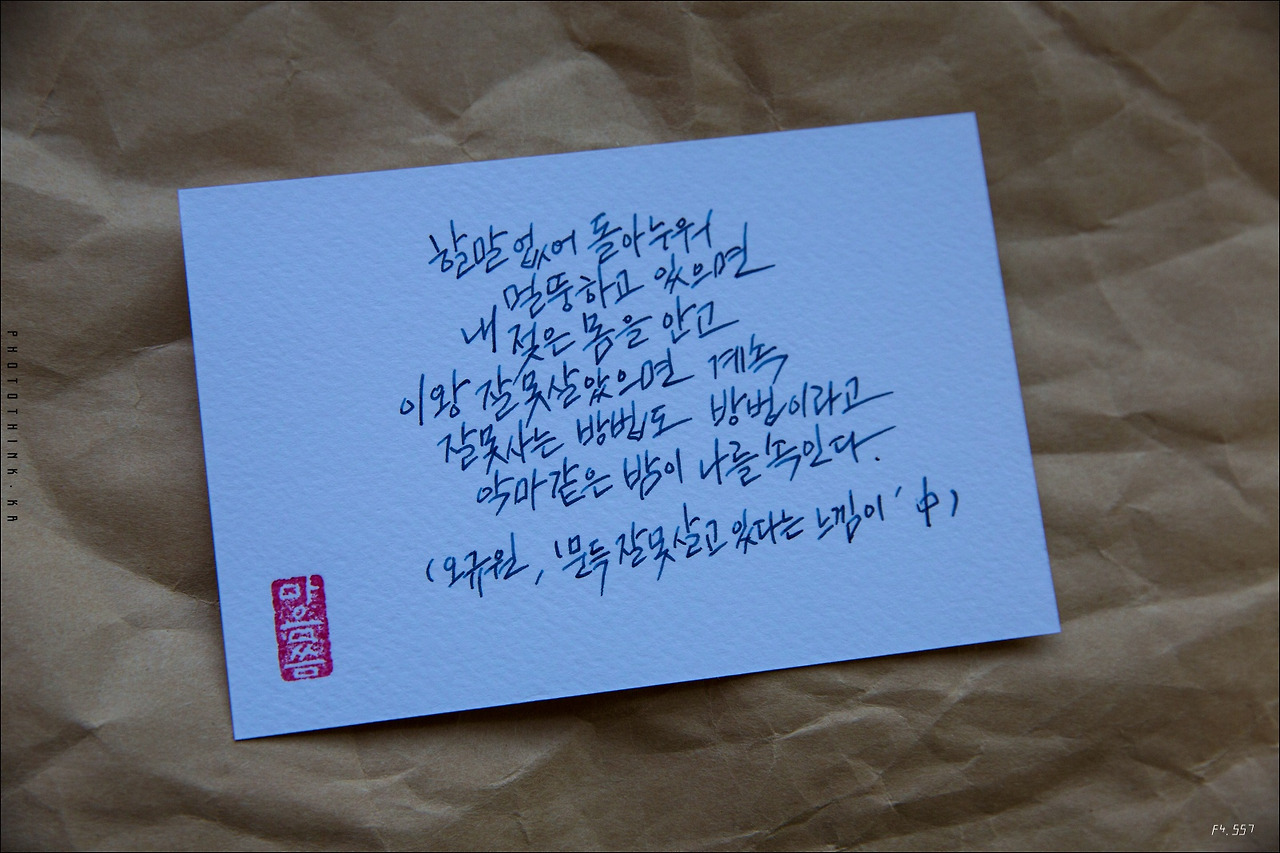 할말 없어 돌아누워
멀뚱하고 있으면
내 젖은 몸을 안고
이왕 잘못 살았으면 계속
잘못 사는 방법도 방법이라고
악마 같은 밤이 나를 속인다.
(오규원, '문득 잘못 살고 있다는 느낌이' 中)
PHOTOTHINK.KA
F4.557